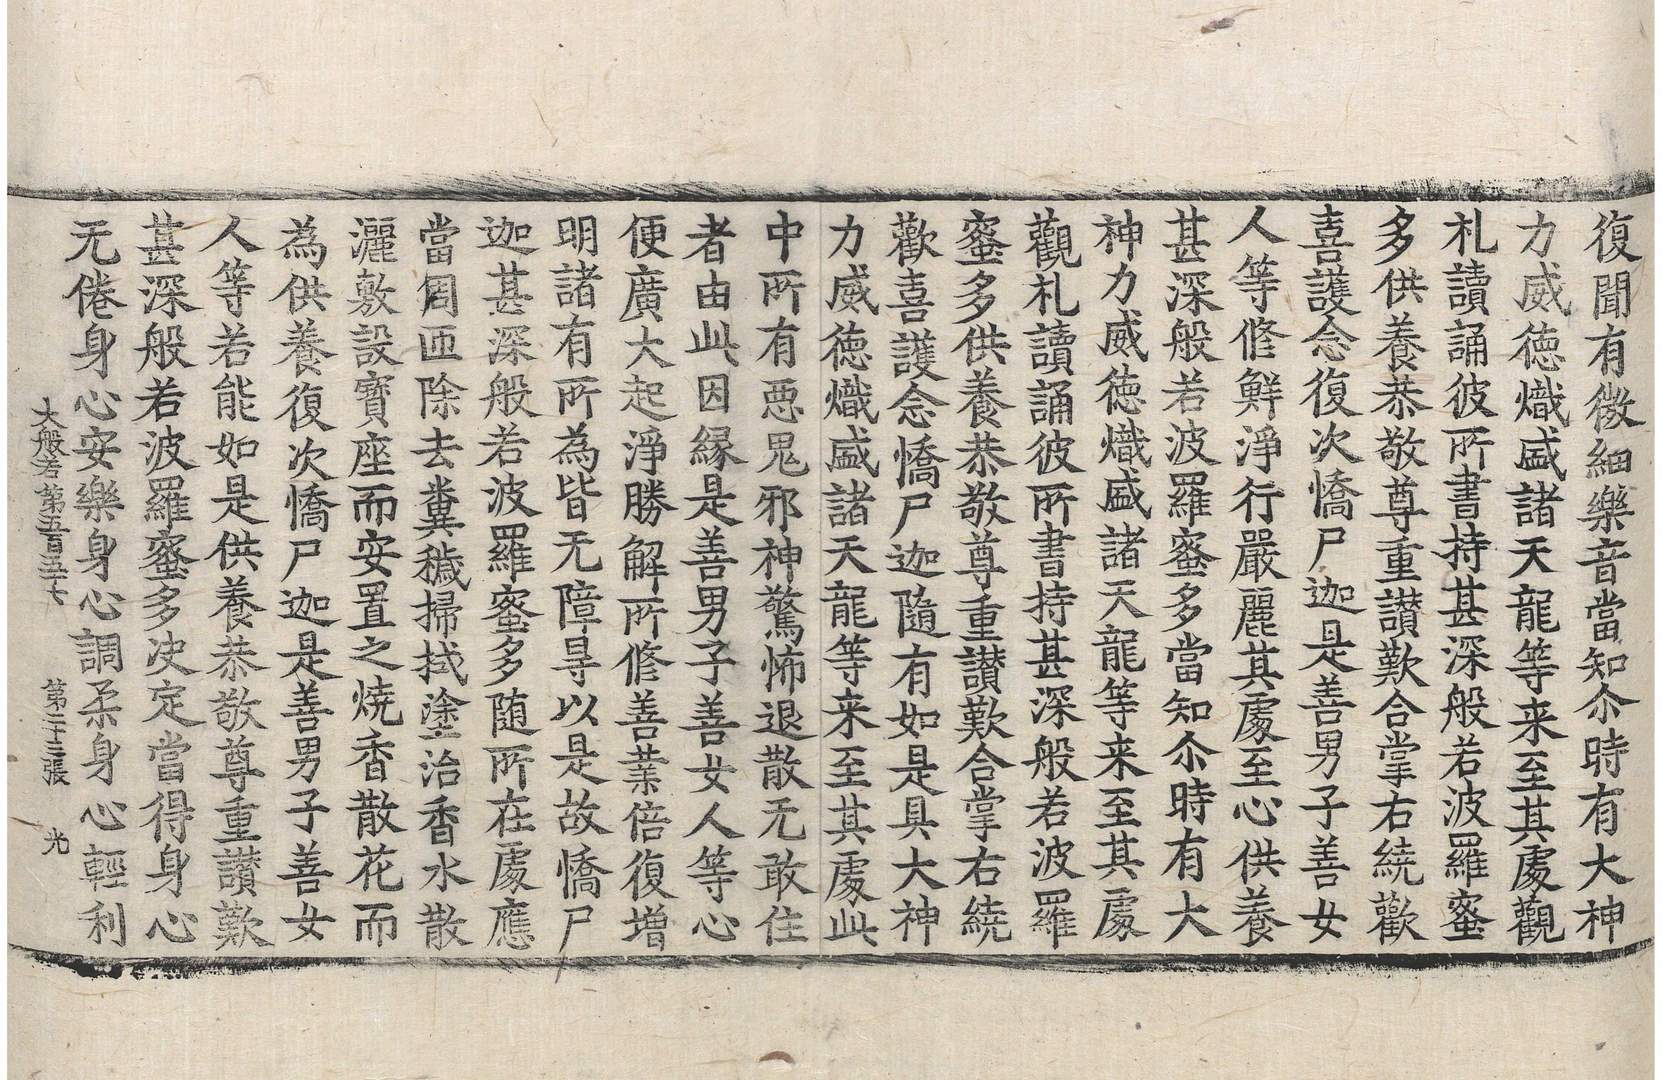 復聞有微細樂音當知尒時有大神
力威徳熾盛諸天龍等来至其處觀
礼讀誦彼所書持甚深般若波羅蜜
多供養恭敬尊重讃歎合掌右繞歡
喜護念復次憍尸迦是善男子善女
人等修鮮淨行嚴麗其處至心供養
甚深般若波羅蜜多當知尒時有大
神力威徳熾盛諸天龍等来至其處
觀礼讀誦彼所書持甚深般若波羅
蜜多供養恭敬尊重讃歎合掌右繞
歡喜護念憍尸迦隨有如是具大神
力威徳熾盛諸天龍等来至其處此
中所有惡鬼邪神驚怖退散无敢住
者由此因縁是善男子善女人等心
便廣大起淨勝解所修善業倍復増
明諸有所為皆无障㝵以是故憍尸
迦甚深般若波羅蜜多随所在處應
當周匝除去糞穢掃拭塗治香水散
灑敷設寳座而安置之焼香散花而
為供養復次憍尸迦是善男子善女
人等若能如是供養恭敬尊重讃歎
甚深般若波羅蜜多决定當得身心
无倦身心安樂身心調柔身心輕利
大般若第五百五十六　第二十三張　光